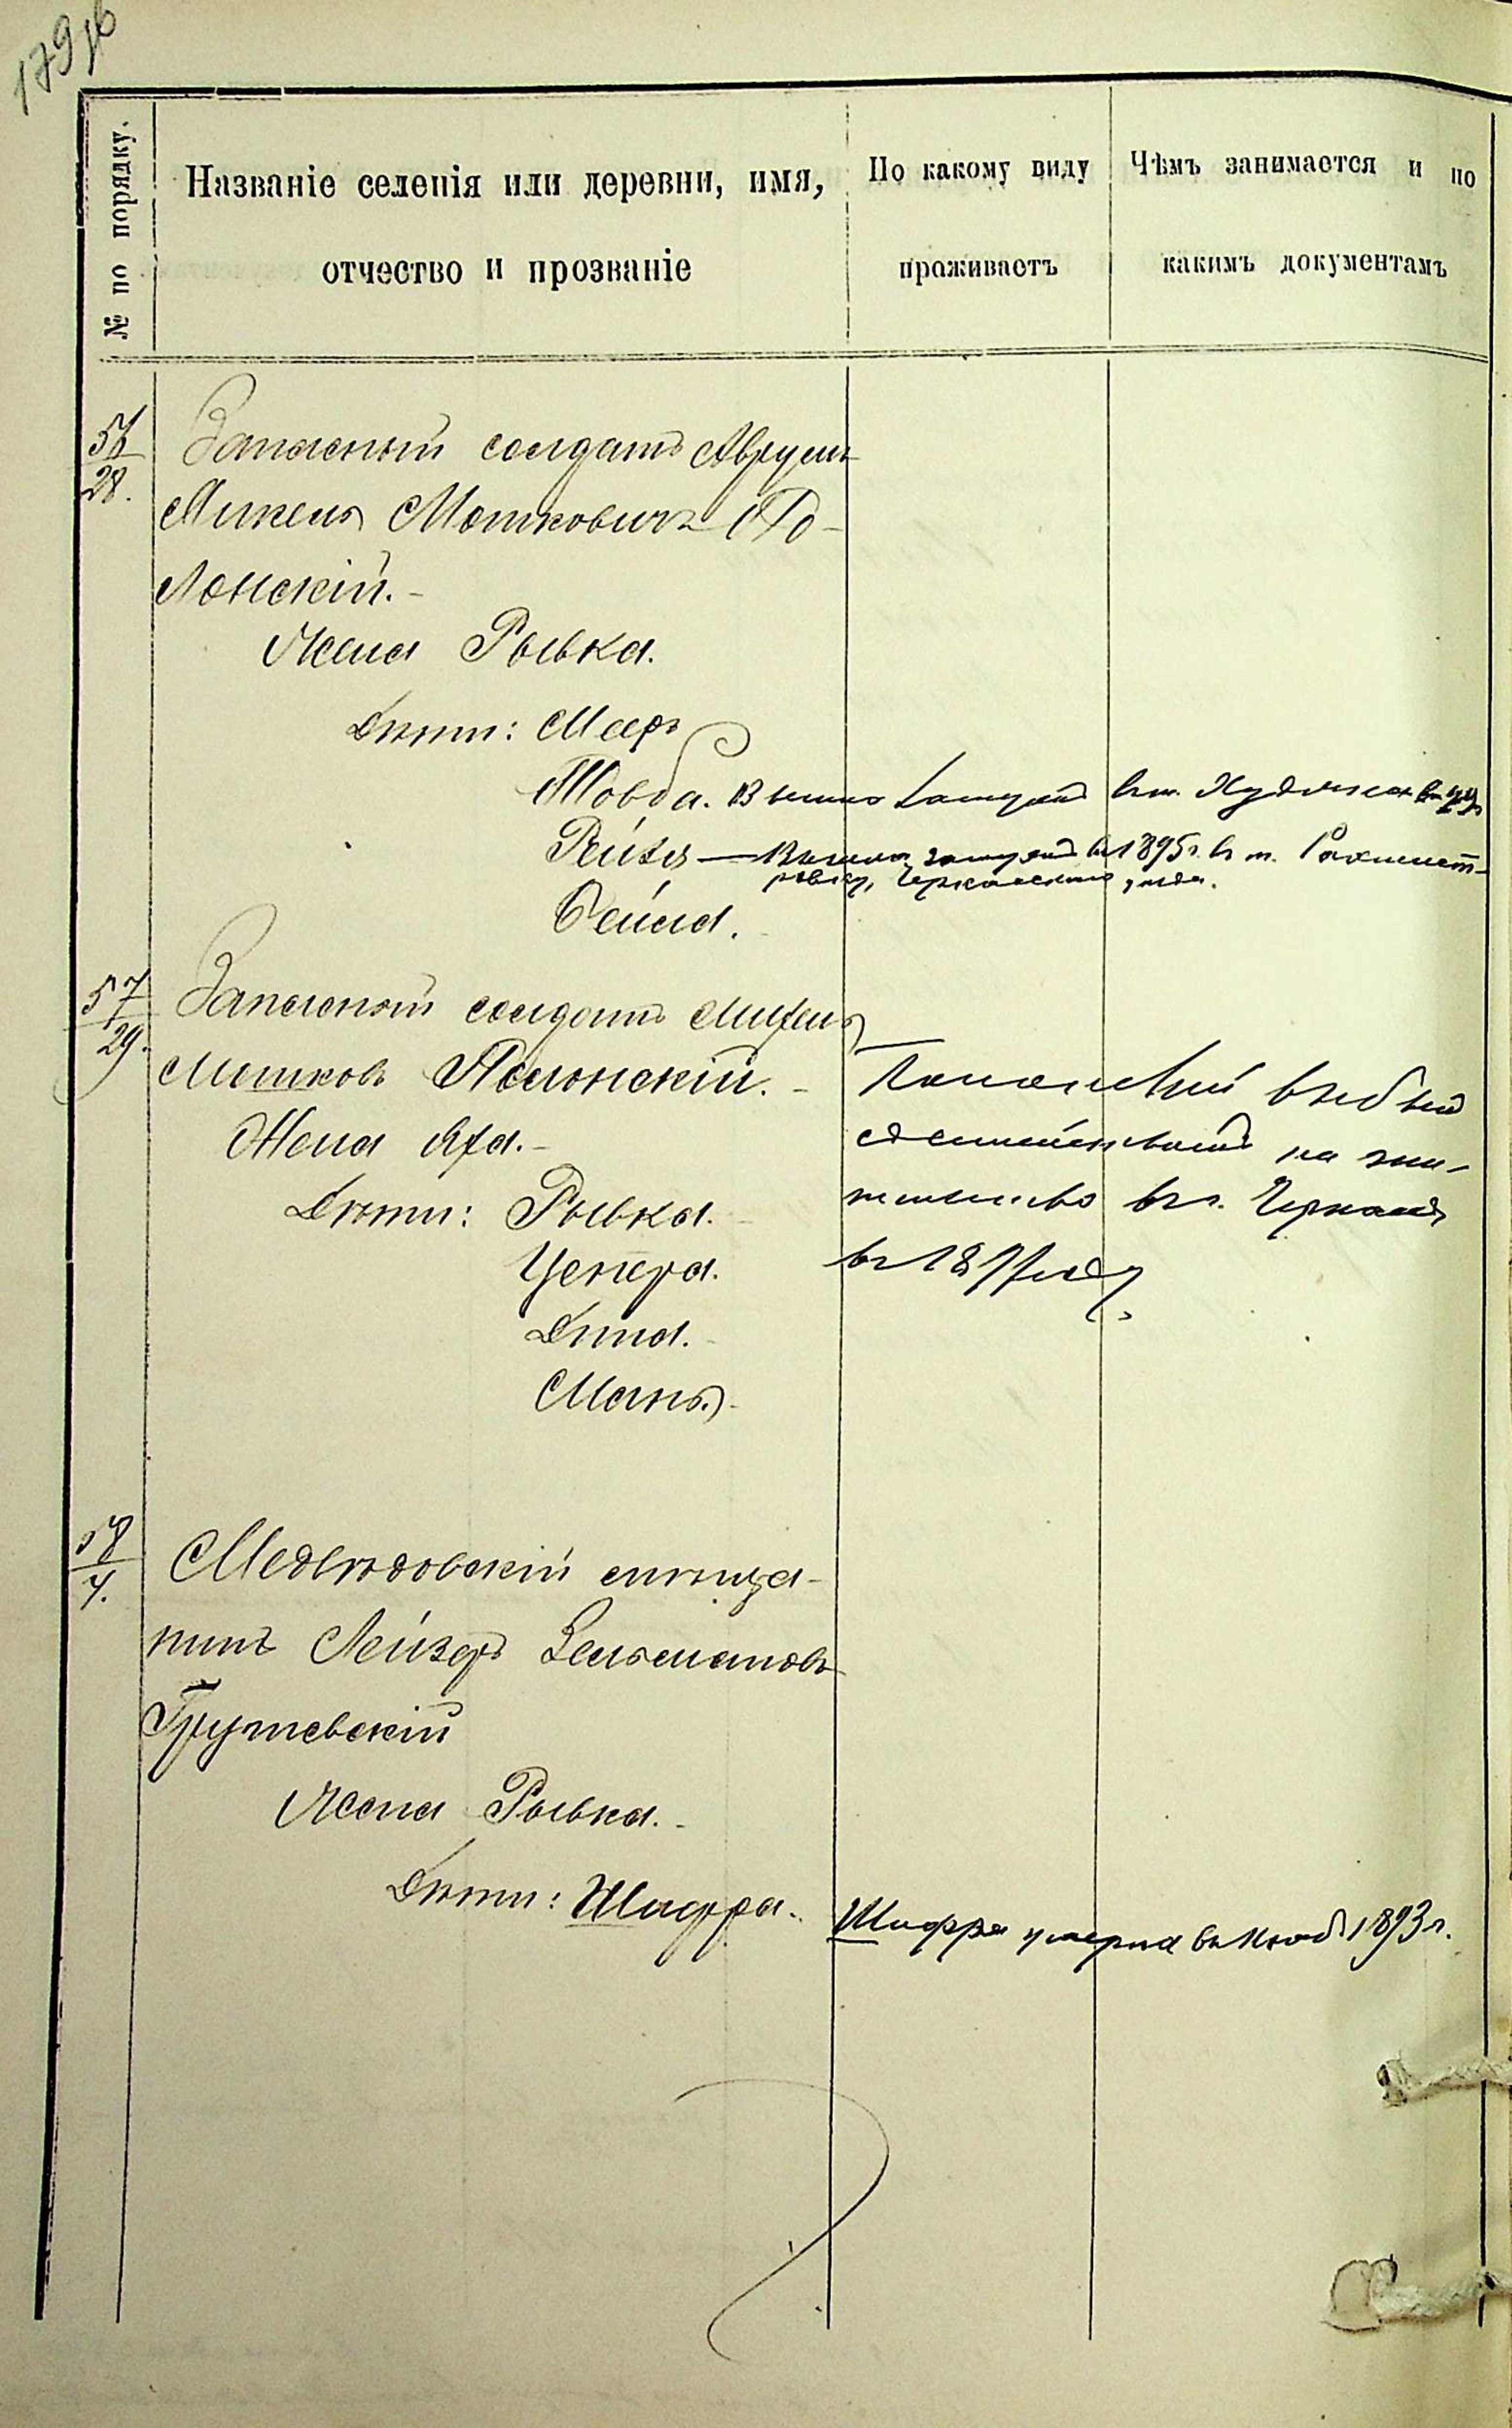 179 об
№ по порядку.
Названіе селенія или деревни, имя,
отчество и прозваніе
По какому виду
проживаетъ
Чѣмъ занимается и по
какимъ документамъ
56
28.
Запасный солдатъ Аврумъ
Микель Мошковичъ По-
лонскій.-
Жена Рывка.
Дѣти: Мееръ
Товба. Вышла замужъ въ м.
Рейзя — Вышла замужъ въ 1895 г. въ м. Ротмист-
ровку, Черкасскаго уѣзда.
Бейла.
57
29.
Запасный солдатъ Михель
Мошковъ Полонскій. -
Жена Хая.-
Дѣти: Рывка.
Ципера.
Дина.
Мань.
Полонскій выбылъ
съ семействомъ на жи-
тельство въ г. Черкасы
въ году
58
7.
Медвѣдовскій мѣща-
нинъ Лейзеръ Зельмановъ
Грушевскій
Жена Рывка.-
Дѣти: Шифра.
Шифра умерла въ 1893 г.